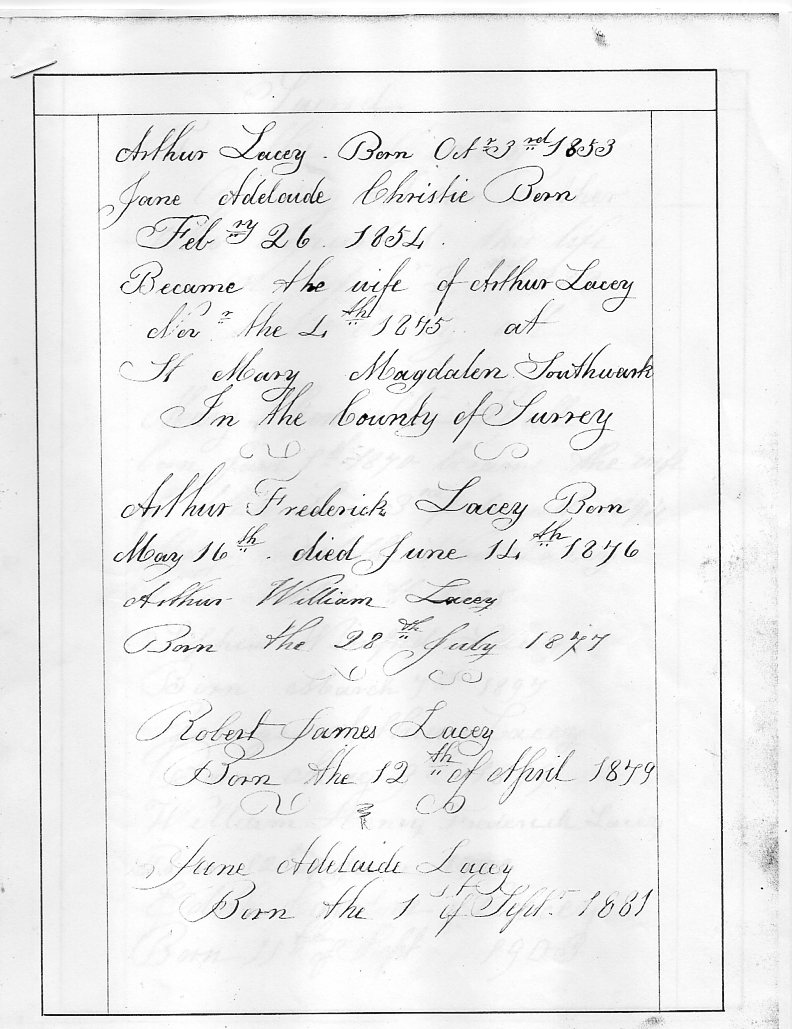 Arthur Lacey. Born Octr 3rd 1853
Jane Adelaide Christie Born
Febry 26. 1854.
Became the wife of Arthur Lacey
Novr the 4th 1875 at
St Mary Magdalen Southwark
In the County of Surrey
Arthur Frederick Lacey Born
May 16th. died June 14th 1876
Arthur William Lacey
Born the 28th July 1877
Robert James Lacey
Born the 12th of April 1879
Jane Adelaide Lacey
Born the 1st of Septr 1881